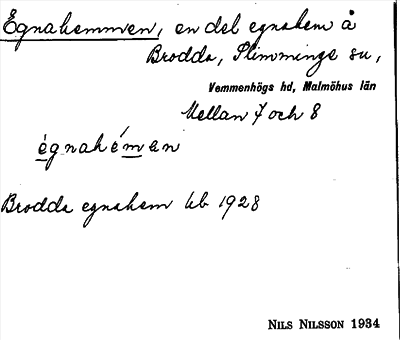 Egnahemmen, en del egnahem å
Brodda, Slimminge sn,
Vemmenhögs hd, Malmöhus län
Mellan 7 och 8
égnahémen
Brodda egnahem kb 1928
NILS NILSSON 1934